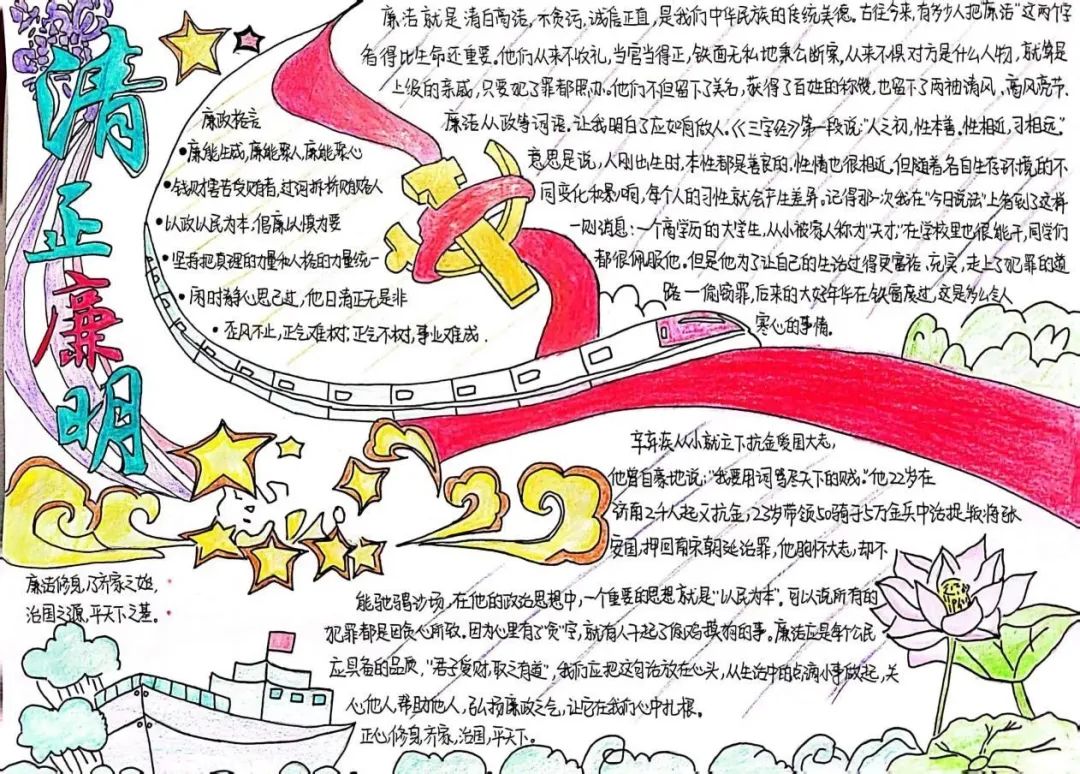 清正廉明
廉洁就是清白高洁,不贪污,诚信正直,是我们中华民族的传统美德。古往今来,有多少人把"廉洁"这两个字
看得比生命还重要。他们从来不收礼,当官当得正,铁面无私地秉公断案,从来不惧对方是什么人物,就算是
上级的亲戚,只要犯了罪都照办。他们不但留下了美名,获得了百姓的称赞,也留下了两袖清风、高风亮节、
廉洁从政等词语。让我明白了应如何做人。《三字经》第一段说:"人之初,性本善。性相近,习相远。"
意思是说,人刚出生时,本性都是善良的,性情也很相近。但随着各自生存环境的不
同变化和影响,每个人的习性就会产生差异。记得那一次我在"今日说法"上看到了这样
一则消息:一个高学历的大学生,从小被家人称为"天才"在学校里也很能干,同学们
都很佩服他。但是他为了让自己的生活过得更富裕、充实,走上了犯罪的道
路——偷窃罪,后来的大好年华在铁窗度过,这是多么令人
寒心的事情。
廉政格言
•廉能生威,廉能聚人,廉能聚心
•钱财害害贪财者,过河拆桥财路人
•以政以民为本,倡廉以慎为要
•坚持把真理的力量和人格的力量统一
•闲时静心思己过,他日清正无是非
•歪风不止,正气难树,正气不树,事业难成.
辛弃疾从小就立下抗金爱国大志,
他曾自豪地说:"我要用词骂尽天下的贼。"他22岁在
济南2千人起义抗金,23岁带领50骑于5万金兵中活捉叛将张
安国,押回南宋朝廷治罪,他胸怀大志,却不
能驰骋沙场,在他的政治思想中,一个重要的思想就是"以民为本"。可以说所有的
犯罪都是因贪心所致。因为心里有了"贪"字,就有人干起了偷鸡摸狗的事。廉洁应是每个公民
应具备的品质,"君子爱财,取之有道",我们应把这句话放在心头,从生活中的点滴小事做起,关
心他人,帮助他人,弘扬廉政之气,让它在我们心中扎根。
正心,修身,齐家,治国,平天下。
廉洁修身,乃齐家之始,
治国之源,平天下之基。